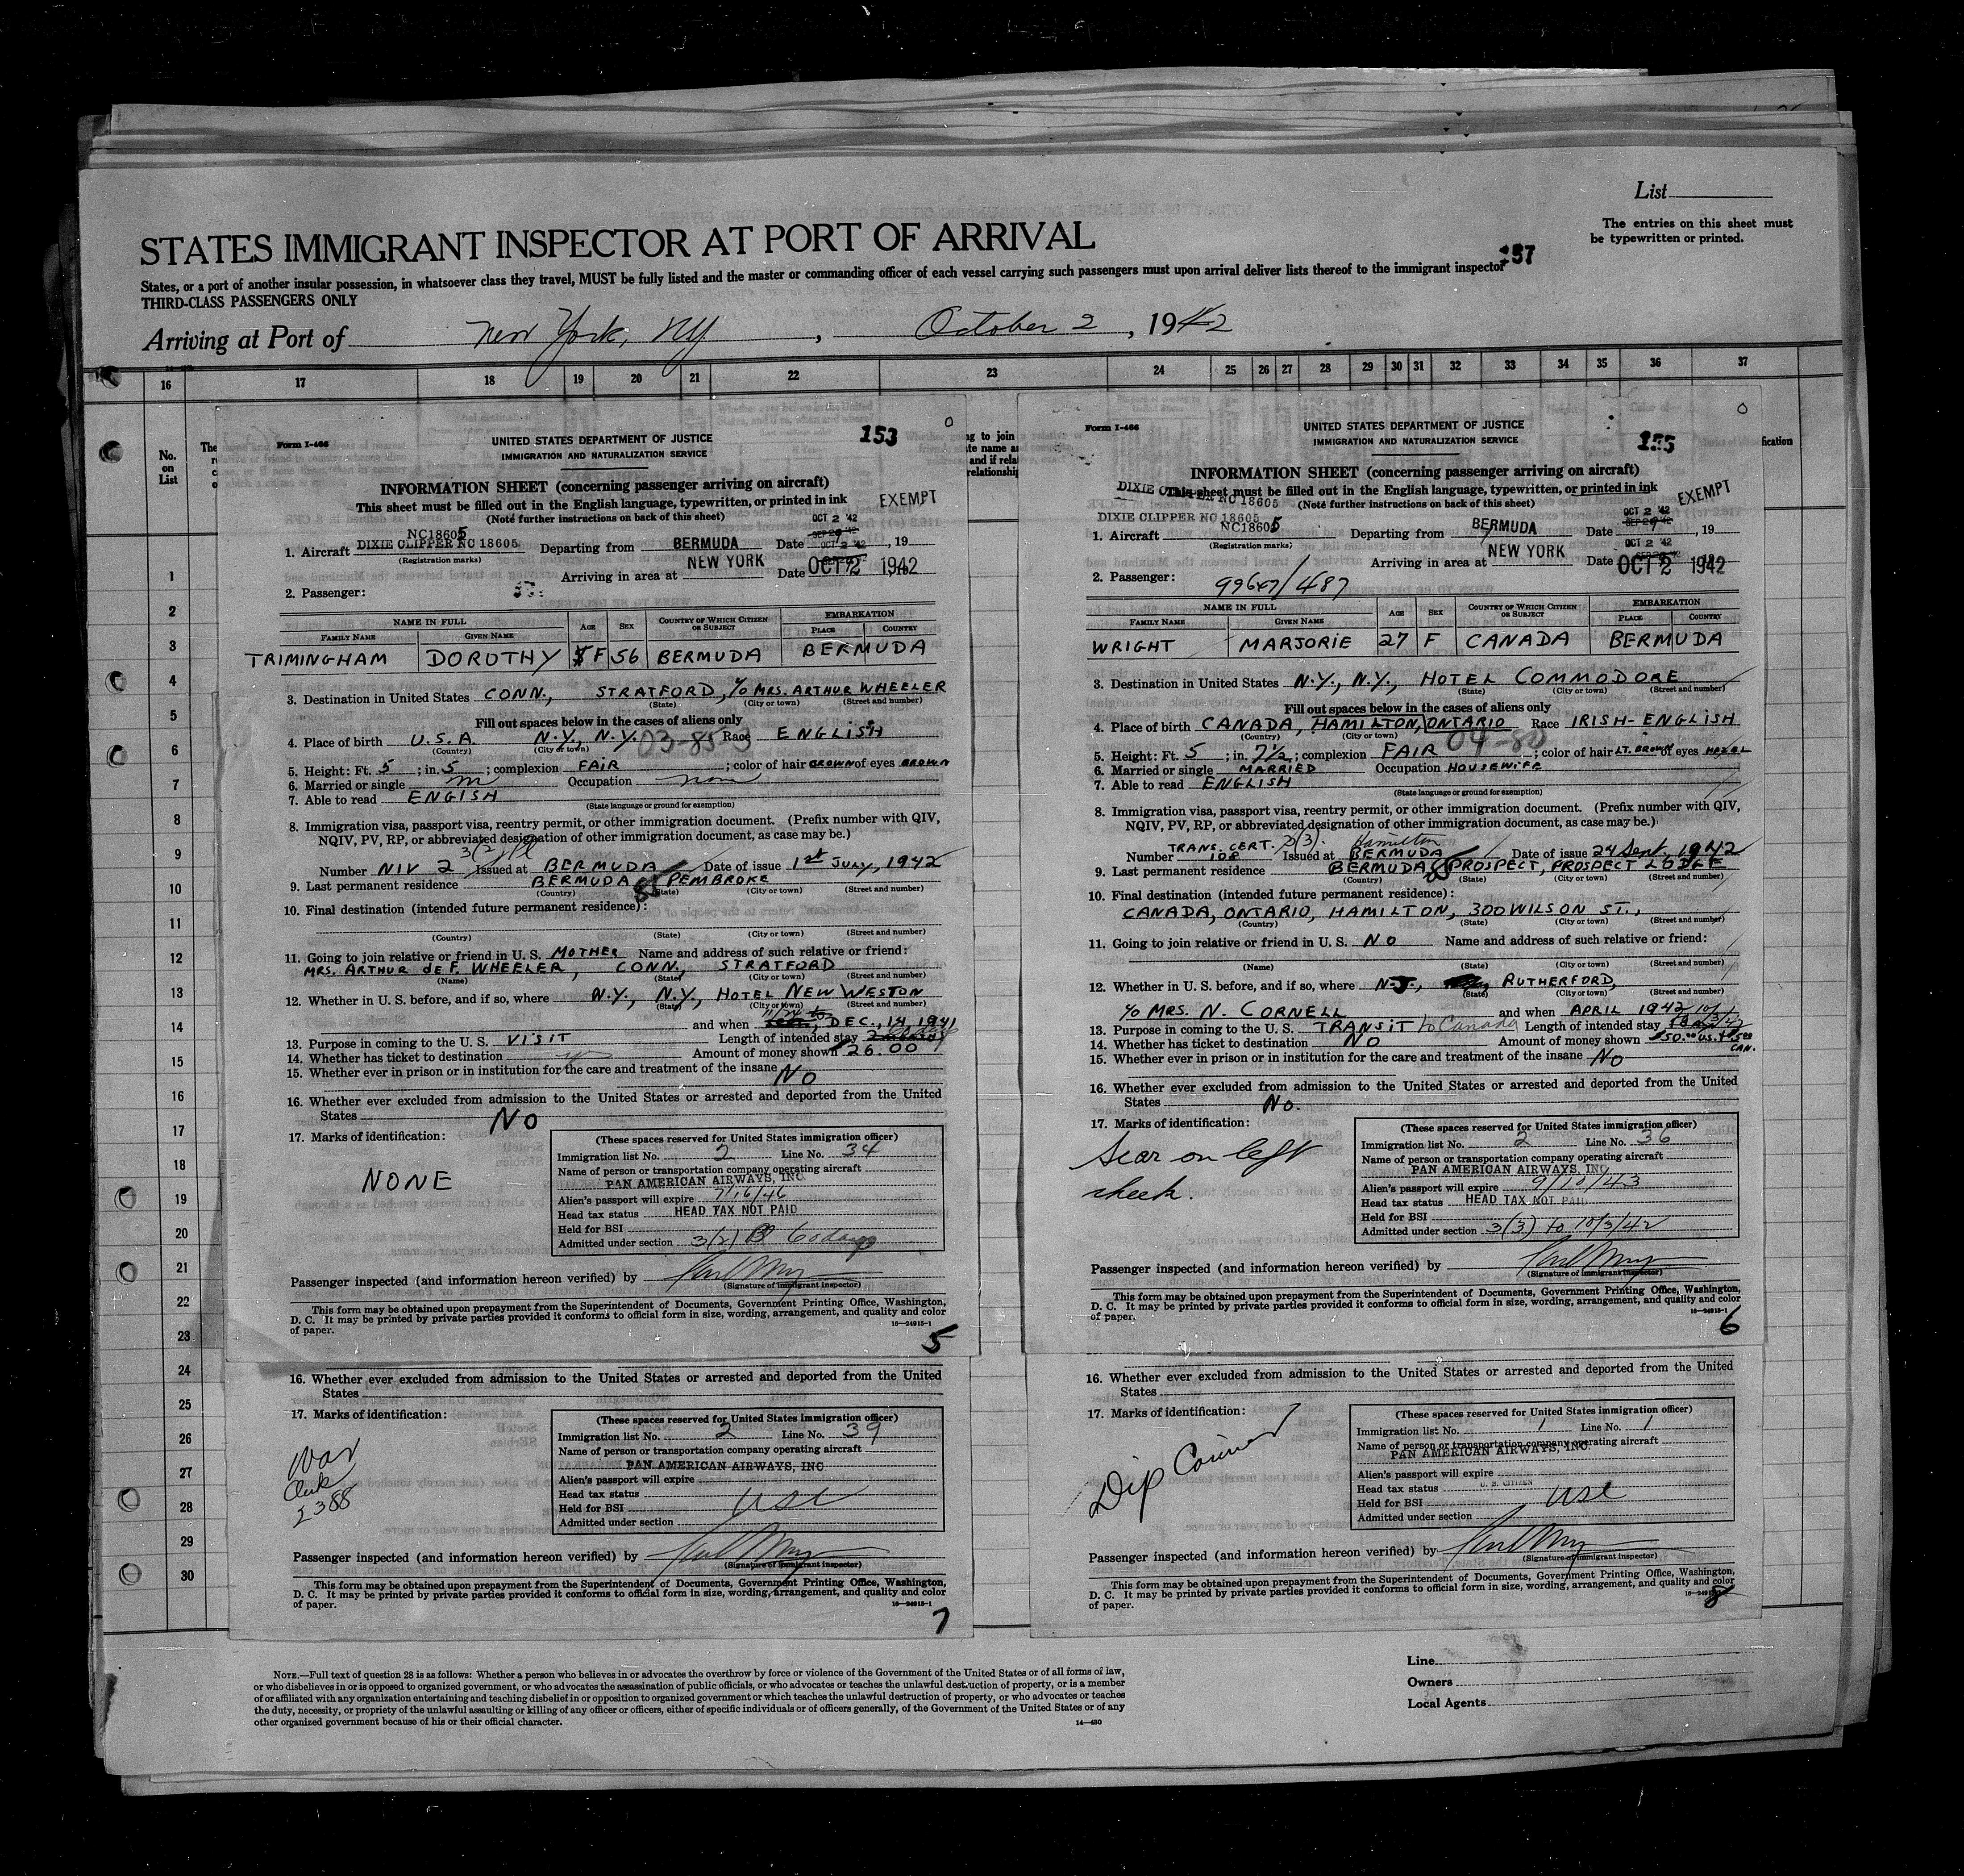 List
The entries on this sheet must
be typewritten or printed.
STATES IMMIGRANT INSPECTOR AT PORT OF ARRIVAL
157
States, or a port of another insular possession, in whatsoever class they travel, MUST be fully listed and the master or commanding officer of each vessel carrying such passengers must upon arrival deliver lists thereof to the immigrant inspector
THIRD-CLASS PASSENGERS ONLY
Arriving at Port of New York, NY, October 2, 1942
16 17 18 19 20 21 22 23 24 25 26 27 28 29 30 31 32 33 34 35 36 37
No.
on
List
1
2
3
4
5
6
7
8
9
10
11
12
13
14
15
16
17
18
19
20
21
22
23
24
25
26
27
28
29
30
Form I-466
UNITED STATES DEPARTMENT OF JUSTICE
IMMIGRATION AND NATURALIZATION SERVICE
153
INFORMATION SHEET (concerning passenger arriving on aircraft)
This sheet must be filled out in the English language, typewritten, or printed in ink
EXEMPT
(Note further instructions on back of this sheet)
OCT 2 '42
NC18605
1. Aircraft DIXIE CLIPPER NC 18605 Departing from BERMUDA Date , 19
(Registration marks)
OCT 2 '42
Arriving in area at NEW YORK Date OCT 2 1942
2. Passenger:
NAME IN FULL AGE SEX COUNTRY OF WHICH CITIZEN OR SUBJECT EMBARKATION
FAMILY NAME GIVEN NAME PLACE COUNTRY
TRIMINGHAM DOROTHY F 56 BERMUDA BERMUDA
3. Destination in United States CONN., STRATFORD, c/o MRS. ARTHUR WHEELER
(State) (City or town) (Street and number)
Fill out spaces below in the cases of aliens only
4. Place of birth U.S.A. N.Y., N.Y. 03-85-5 Race ENGLISH
(Country) (City or town)
5. Height: Ft. 5; in. 5; complexion FAIR; color of hair BROWN of eyes BROWN
6. Married or single m Occupation none
7. Able to read ENGISH
(State language or ground for exemption)
8. Immigration visa, passport visa, reentry permit, or other immigration document. (Prefix number with QIV,
NQIV, PV, RP, or abbreviated designation of other immigration document, as case may be.)
3(2)
Number NIV 2 Issued at BERMUDA Date of issue 1st JULY, 1942
9. Last permanent residence BERMUDA 85 PEMBROKE
(Country) (State) (City or town) (Street and number)
10. Final destination (intended future permanent residence):
(Country) (State) (City or town) (Street and number)
11. Going to join relative or friend in U. S. MOTHER Name and address of such relative or friend:
MRS. ARTHUR deF. WHEELER, CONN., STRATFORD
(Name) (State) (City or town) (Street and number)
12. Whether in U. S. before, and if so, where N.Y., N.Y., HOTEL NEW WESTON
(State) (City or town) (Street and number)
11/24 to
and when DEC., 14 1941
13. Purpose in coming to the U. S. VISIT Length of intended stay 60 days
14. Whether has ticket to destination yes Amount of money shown $26.00
15. Whether ever in prison or in institution for the care and treatment of the insane NO
16. Whether ever excluded from admission to the United States or arrested and deported from the United
States NO
17. Marks of identification:
NONE
(These spaces reserved for United States immigration officer)
Immigration list No. 2 Line No. 34
Name of person or transportation company operating aircraft
PAN AMERICAN AIRWAYS, INC.
Alien's passport will expire 7/16/46
Head tax status HEAD TAX NOT PAID
Held for BSI
Admitted under section 3(2) B 60 days
Passenger inspected (and information hereon verified) by
(Signature of immigrant inspector)
This form may be obtained upon prepayment from the Superintendent of Documents, Government Printing Office, Washington,
D. C. It may be printed by private parties provided it conforms to official form in size, wording, arrangement, and quality and color
of paper.
16—24915-1
5
Form I-466
UNITED STATES DEPARTMENT OF JUSTICE
IMMIGRATION AND NATURALIZATION SERVICE
155
INFORMATION SHEET (concerning passenger arriving on aircraft)
This sheet must be filled out in the English language, typewritten, or printed in ink
NC 18605
EXEMPT
(Note further instructions on back of this sheet)
DIXIE CLIPPER NC 18605
OCT 2 '42
1. Aircraft NC18605 Departing from BERMUDA Date , 19
(Registration marks)
OCT 2 '42
Arriving in area at NEW YORK Date OCT 2 1942
2. Passenger: 99647/487
NAME IN FULL AGE SEX COUNTRY OF WHICH CITIZEN OR SUBJECT EMBARKATION
FAMILY NAME GIVEN NAME PLACE COUNTRY
WRIGHT MARJORIE 27 F CANADA BERMUDA
3. Destination in United States N.Y., N.Y., HOTEL COMMODORE
(State) (City or town) (Street and number)
Fill out spaces below in the cases of aliens only
4. Place of birth CANADA, HAMILTON, ONTARIO Race IRISH-ENGLISH
(Country) (City or town) 04-80
5. Height: Ft. 5; in. 7½; complexion FAIR; color of hair LT. BROWN of eyes HAZEL
6. Married or single MARRIED Occupation HOUSEWIFE
7. Able to read ENGLISH
(State language or ground for exemption)
8. Immigration visa, passport visa, reentry permit, or other immigration document. (Prefix number with QIV,
NQIV, PV, RP, or abbreviated designation of other immigration document, as case may be.)
TRANS. CERT. 3(3). Hamilton
Number 108 Issued at BERMUDA Date of issue 24 Sept. 1942
9. Last permanent residence BERMUDA 85 PROSPECT, PROSPECT LODGE
(Country) (State) (City or town) (Street and number)
10. Final destination (intended future permanent residence):
CANADA, ONTARIO, HAMILTON, 300 WILSON ST.,
(Country) (State) (City or town) (Street and number)
11. Going to join relative or friend in U. S. NO Name and address of such relative or friend:
(Name) (State) (City or town) (Street and number)
12. Whether in U. S. before, and if so, where N.J., RUTHERFORD,
(State) (City or town) (Street and number)
c/o MRS. N. CORNELL and when APRIL 1942
13. Purpose in coming to the U. S. TRANSIT to Canada Length of intended stay 10/3/42
14. Whether has ticket to destination NO Amount of money shown $50.00 U.S. CAN.
15. Whether ever in prison or in institution for the care and treatment of the insane NO
16. Whether ever excluded from admission to the United States or arrested and deported from the United
States No.
17. Marks of identification:
Scar on left
cheek.
(These spaces reserved for United States immigration officer)
Immigration list No. 2 Line No. 36
Name of person or transportation company operating aircraft
PAN AMERICAN AIRWAYS, INC
Alien's passport will expire 9/10/43
Head tax status HEAD TAX NOT PAID
Held for BSI
Admitted under section 3(3) to 10/3/42
Passenger inspected (and information hereon verified) by
(Signature of immigrant inspector)
This form may be obtained upon prepayment from the Superintendent of Documents, Government Printing Office, Washington,
D. C. It may be printed by private parties provided it conforms to official form in size, wording, arrangement, and quality and color
of paper.
16—24915-1
6
16. Whether ever excluded from admission to the United States or arrested and deported from the United
States
17. Marks of identification:
War
2388
(These spaces reserved for United States immigration officer)
Immigration list No. 2 Line No. 39
Name of person or transportation company operating aircraft
PAN AMERICAN AIRWAYS, INC
Alien's passport will expire
Head tax status
Held for BSI USC
Admitted under section
Passenger inspected (and information hereon verified) by
(Signature of immigrant inspector)
This form may be obtained upon prepayment from the Superintendent of Documents, Government Printing Office, Washington,
D. C. It may be printed by private parties provided it conforms to official form in size, wording, arrangement, and quality and color
of paper.
16—24915-1
7
16. Whether ever excluded from admission to the United States or arrested and deported from the United
States
17. Marks of identification:
Dip Courier
(These spaces reserved for United States immigration officer)
Immigration list No. 1 Line No. 1
Name of person or transportation company operating aircraft
PAN AMERICAN AIRWAYS, INC.
Alien's passport will expire
Head tax status U. S. CITIZEN
Held for BSI USC
Admitted under section
Passenger inspected (and information hereon verified) by
(Signature of immigrant inspector)
This form may be obtained upon prepayment from the Superintendent of Documents, Government Printing Office, Washington,
D. C. It may be printed by private parties provided it conforms to official form in size, wording, arrangement, and quality and color
of paper.
8
NOTE.—Full text of question 28 is as follows: Whether a person who believes in or advocates the overthrow by force or violence of the Government of the United States or of all forms of law,
or who disbelieves in or is opposed to organized government, or who advocates the assassination of public officials, or who advocates or teaches the unlawful destruction of property, or is a member
of or affiliated with any organization entertaining and teaching disbelief in or opposition to organized government or which teaches the unlawful destruction of property, or who advocates or teaches
the duty, necessity, or propriety of the unlawful assaulting or killing of any officer or officers, either of specific individuals or of officers generally, of the Government of the United States or of any
other organized government because of his or their official character.
14—430
Line
Owners
Local Agents